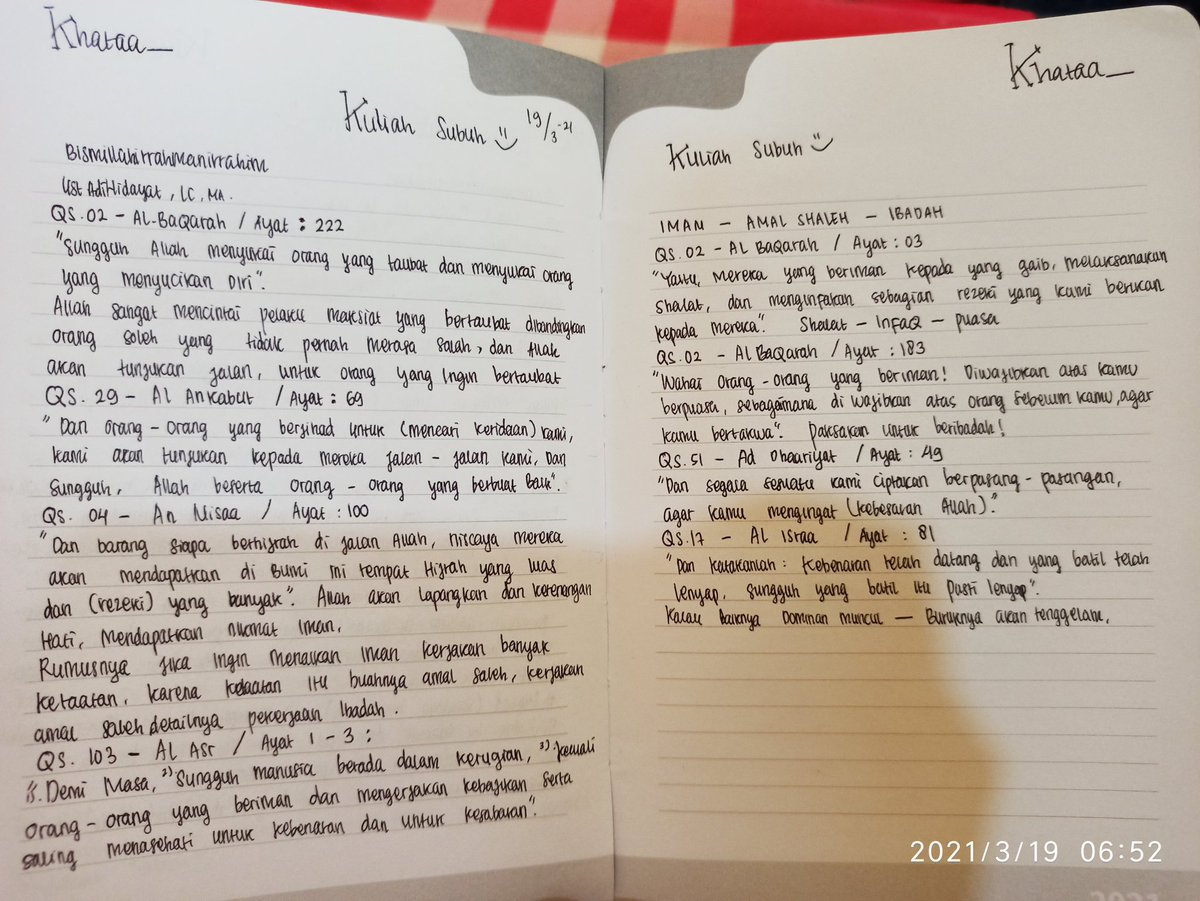 Khataa_
Kuliah Subuh 19/3-21
Bismillahirrahmanirrahim
Ust AdiHidayat, LC, MA.
QS. 02 - AL-BaQarah / Ayat : 222
"Sungguh Allah menyukai orang yang taubat dan menyukai orang
yang menyucikan Diri".
Allah sangat mencintai pelaku maksiat yang bertaubat dibandingkan
orang soleh yang tidak pernah merasa salah, dan Allah
akan tunjukan jalan, untuk orang yang Ingin bertaubat
QS. 29 - Al Ankabut / Ayat : 69
"Dan orang - orang yang berjihad untuk (mencari keridaan) kami,
kami akan tunjukan kepada mereka jalan - jalan kami, Dan
sungguh, Allah beserta orang - orang yang berbuat baik".
QS. 04 - An Nisaa / Ayat : 100
"Dan barang siapa berhijrah di jalan Allah, niscaya mereka
akan mendapatkan di Bumi Ini tempat Hijrah yang luas
dan (rezeki) yang banyak". Allah akan lapangkan dan ketenangan
Hati, Mendapatkan nikmat Iman.
Rumusnya jika Ingin menaikan Iman kerjakan banyak
ketaatan, karena ketaatan Itu buahnya amal saleh, kerjakan
amal saleh detailnya pekerjaan Ibadah.
QS. 103 - AL Asr / Ayat 1 - 3 :
"1. Demi Masa, 2) Sungguh manusia berada dalam kerugian, 3) kecuali
orang - orang yang beriman dan mengerjakan kebajikan serta
saling menasehati untuk kebenaran dan untuk kesabaran".
Khataa_
Kuliah Subuh
IMAN - AMAL SHALEH - IBADAH
QS. 02 - AL BaQarah / Ayat : 03
"Yaitu, Mereka yang beriman kepada yang gaib, melaksanakan
shalat, dan menginfakan sebagian rezeki yang kami berikan
kepada mereka". Shalat - InfaQ - puasa
QS. 02 - AL BaQarah / Ayat : 183
"Wahai Orang - orang yang beriman! Diwajibkan atas kamu
berpuasa, sebagaimana di wajibkan atas orang sebelum kamu, agar
kamu bertakwa". paksakan untuk beribadah!
QS. 51 - Ad Dhaariyat / Ayat : 49
"Dan segala sesuatu kami ciptakan berpasang - pasangan,
agar kamu mengingat (kebesaran Allah)."
QS. 17 - Al Israa / Ayat : 81
"Dan katakanlah : Kebenaran telah datang dan yang batil telah
lenyap, sungguh yang batil Itu Pasti lenyap".
Kalau Baiknya Dominan muncul - Buruknya akan tenggelam.
2021/3/19 06:52